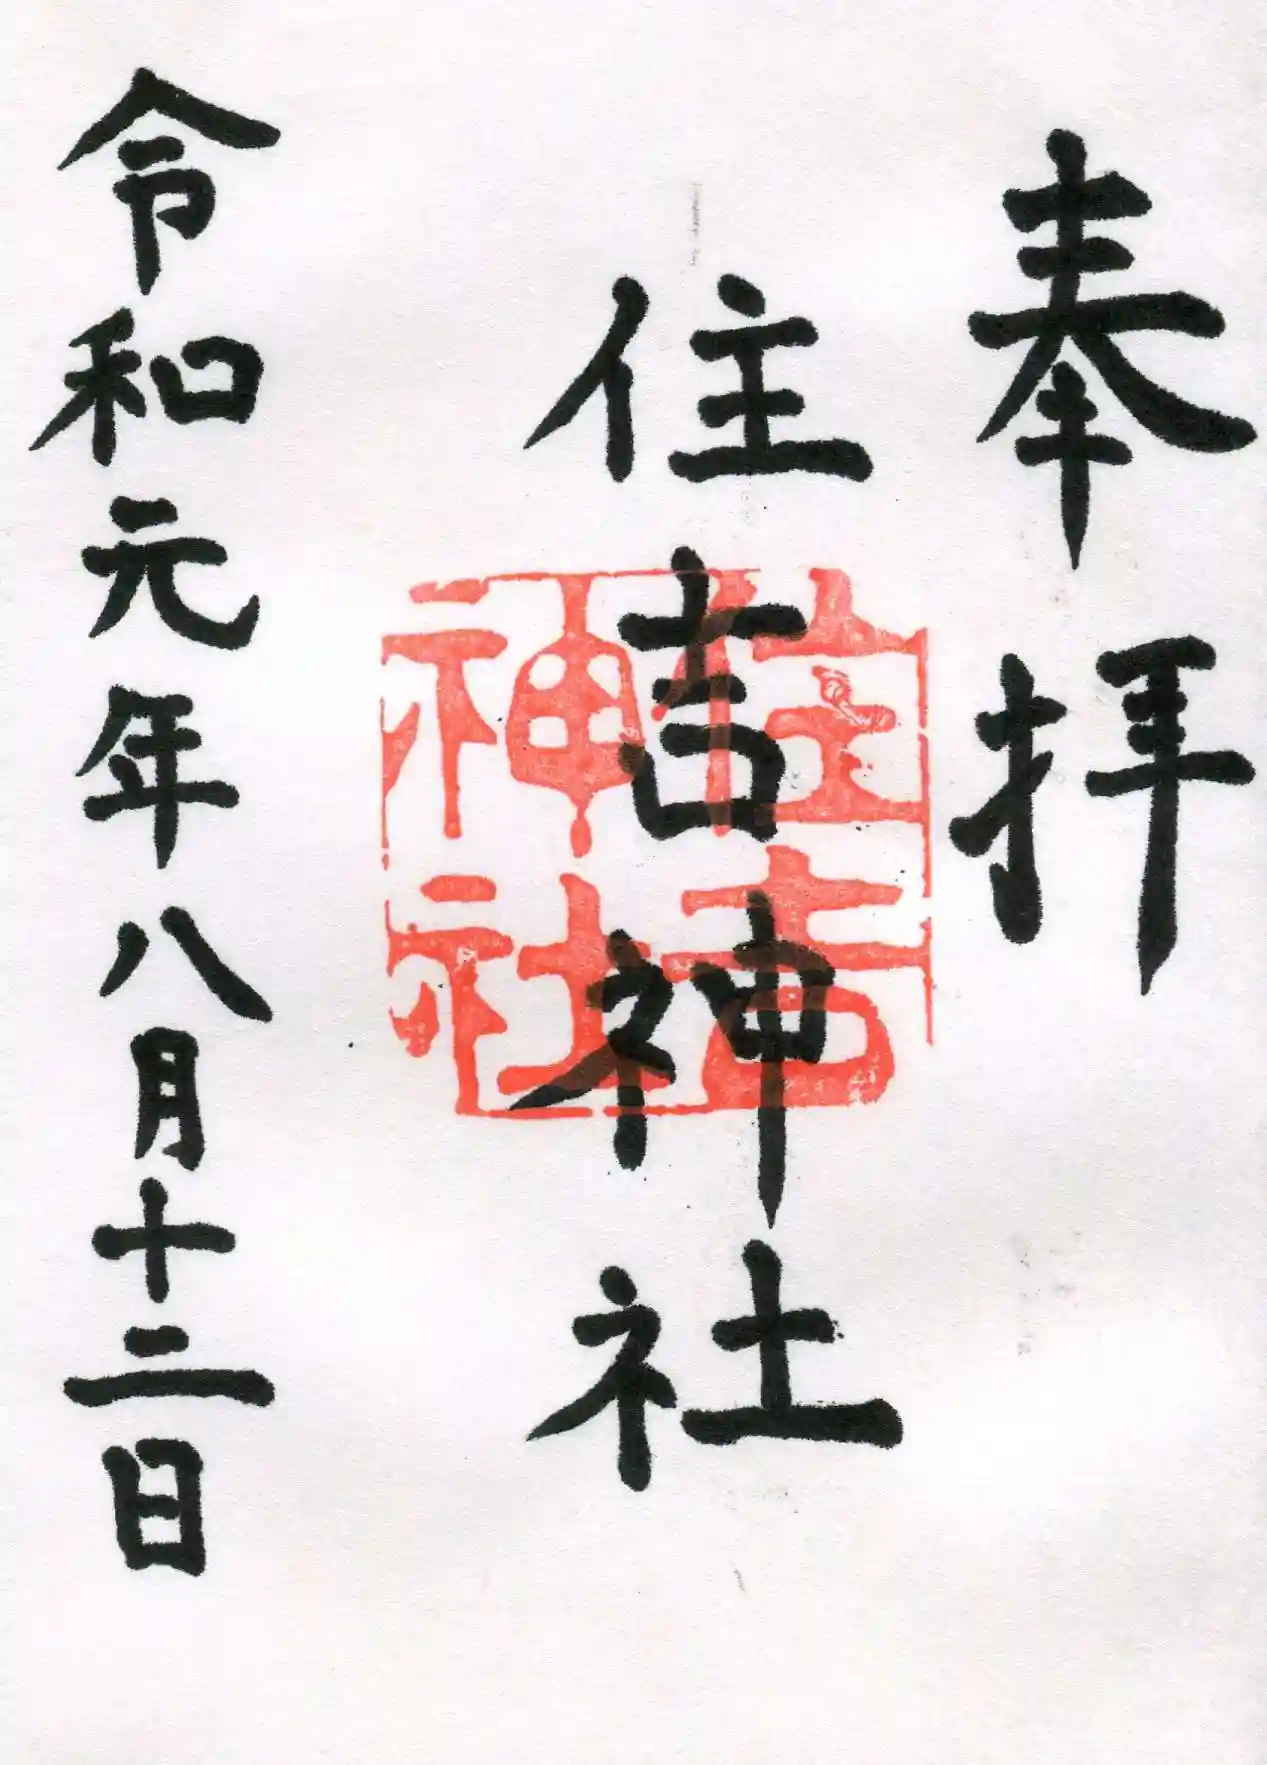 奉拝
住吉神社
住吉
神社
令和元年八月十二日